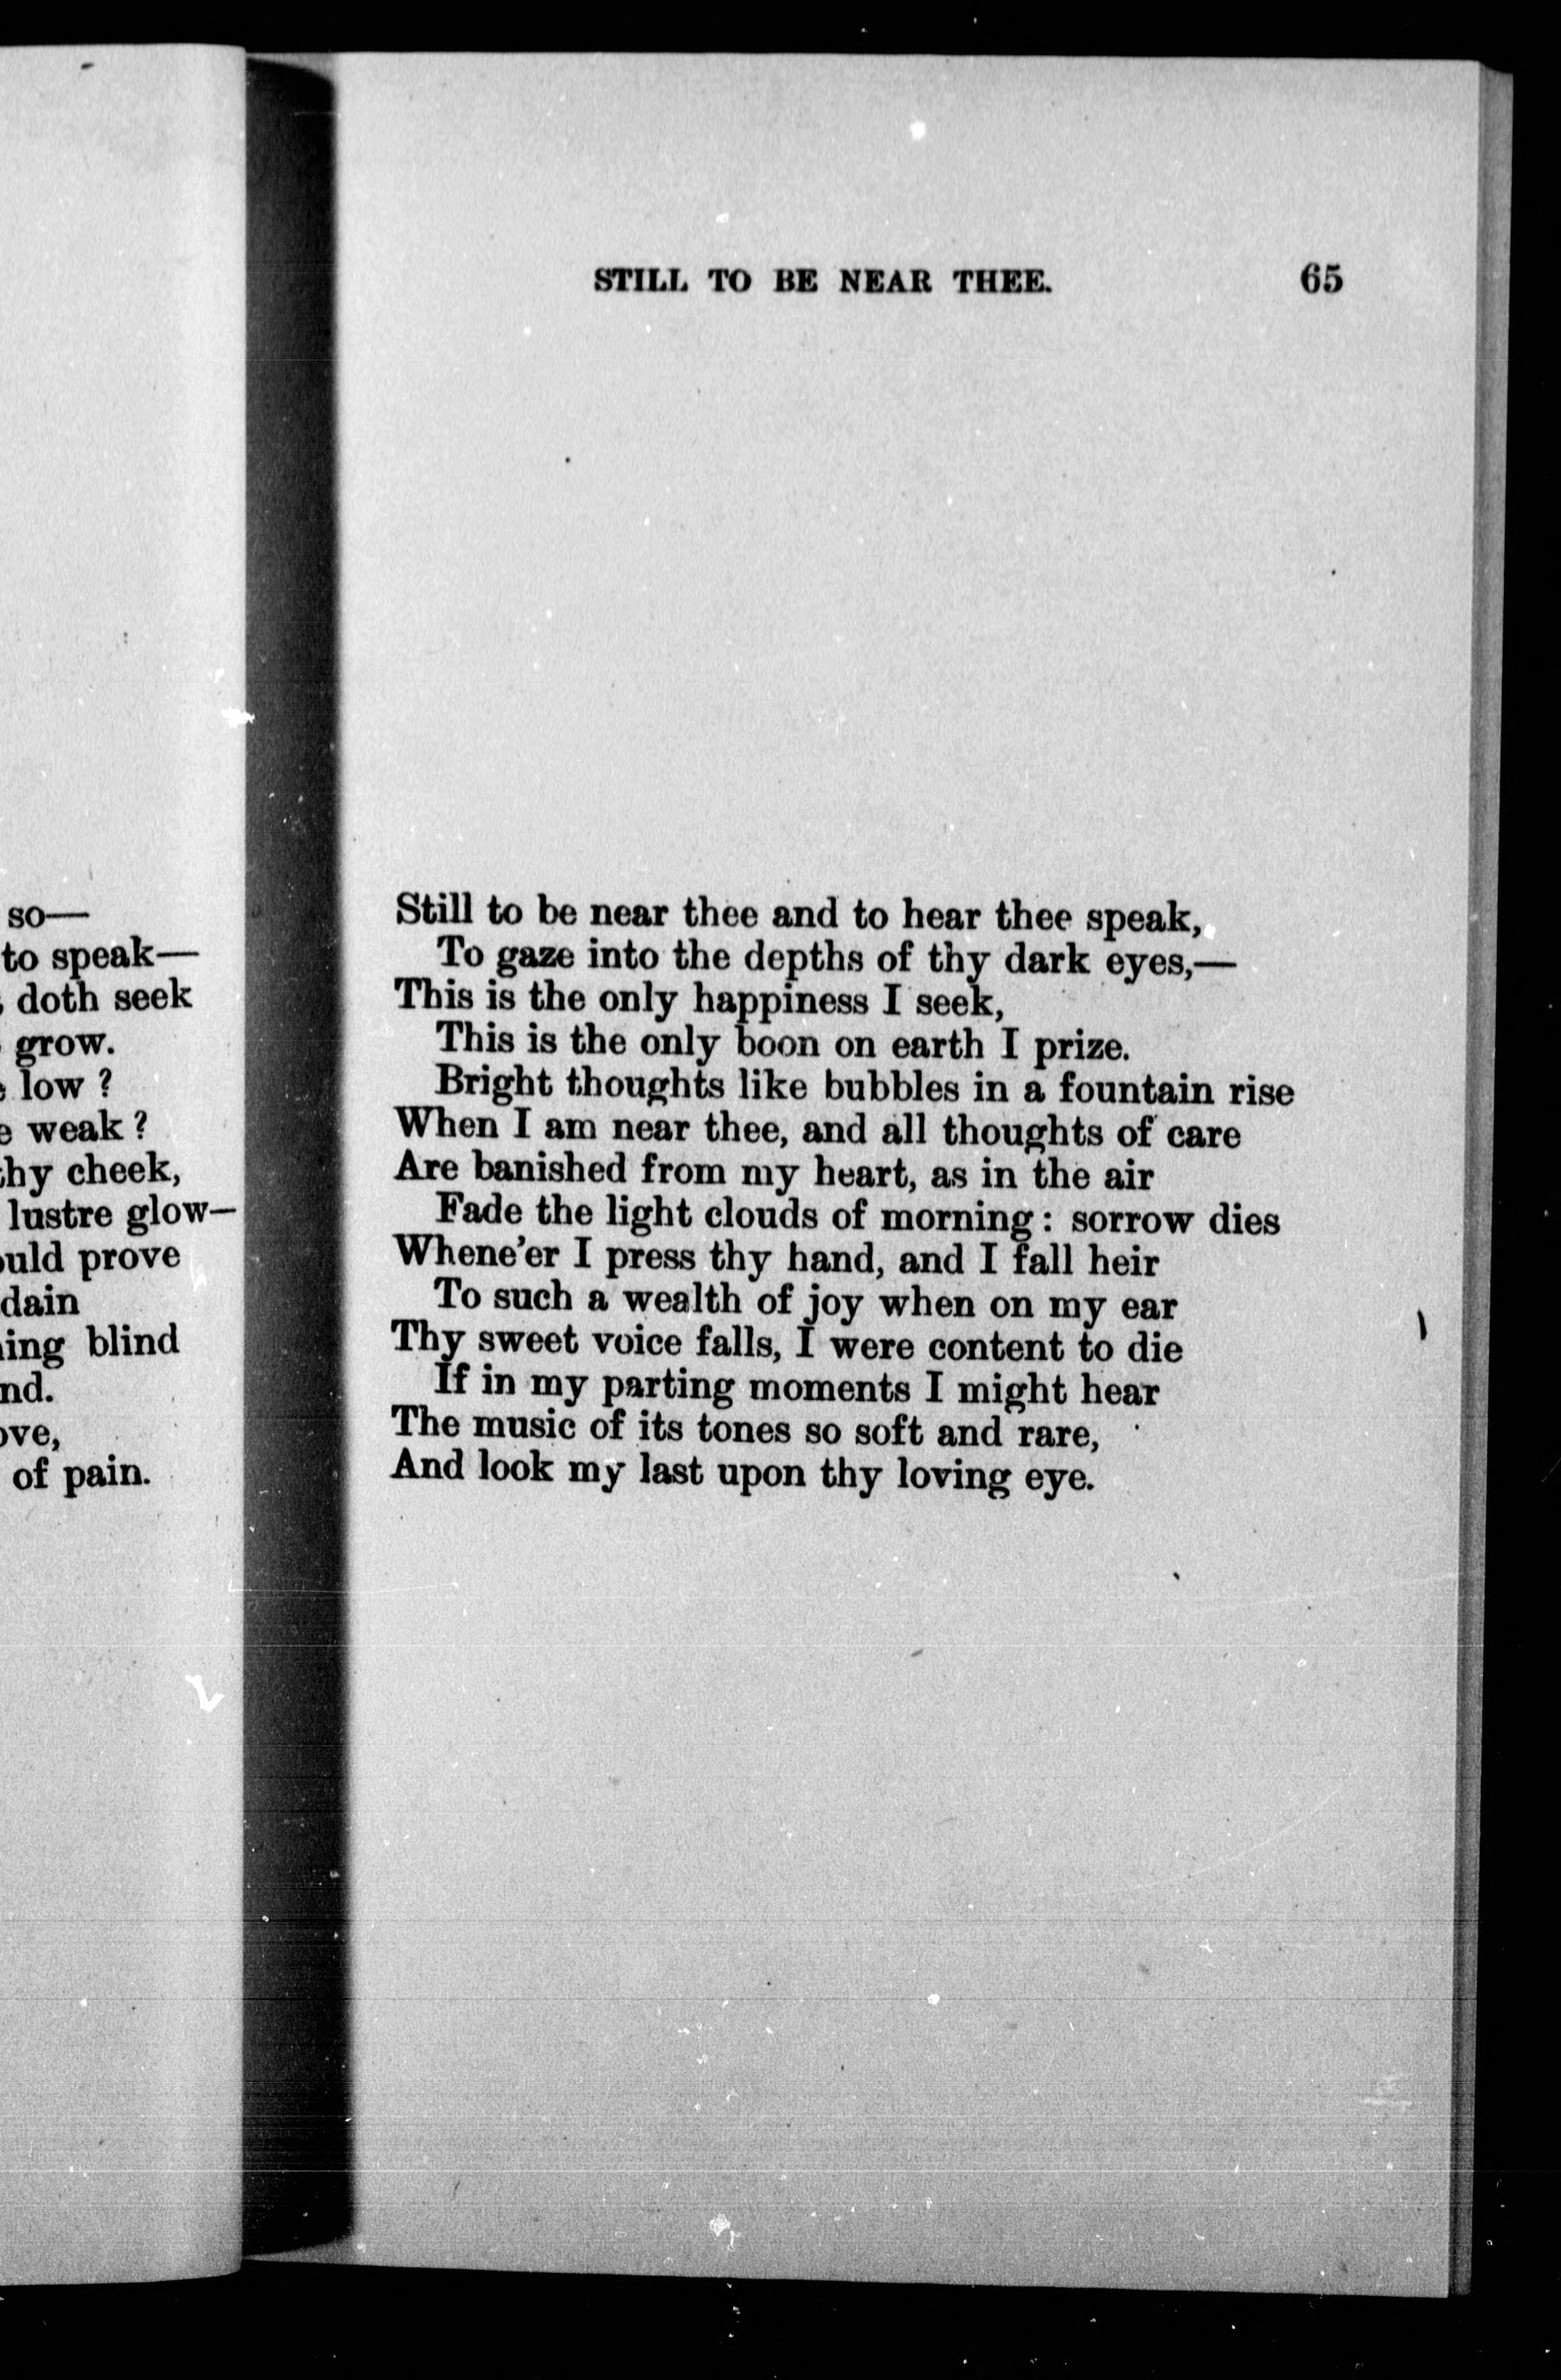 so—
to speak—
doth seek
grow.
low ?
weak ?
cheek,
lustre glow—
prove
blind
of pain.
STILL TO BE NEAR THEE. 65
Still to be near thee and to hear thee speak,
To gaze into the depths of thy dark eyes,—
This is the only happiness I seek,
This is the only boon on earth I prize.
Bright thoughts like bubbles in a fountain rise
When I am near thee, and all thoughts of care
Are banished from my heart, as in the air
Fade the light clouds of morning : sorrow dies
Whene'er I press thy hand, and I fall heir
To such a wealth of joy when on my ear
Thy sweet voice falls, I were content to die
If in my parting moments I might hear
The music of its tones so soft and rare,
And look my last upon thy loving eye.